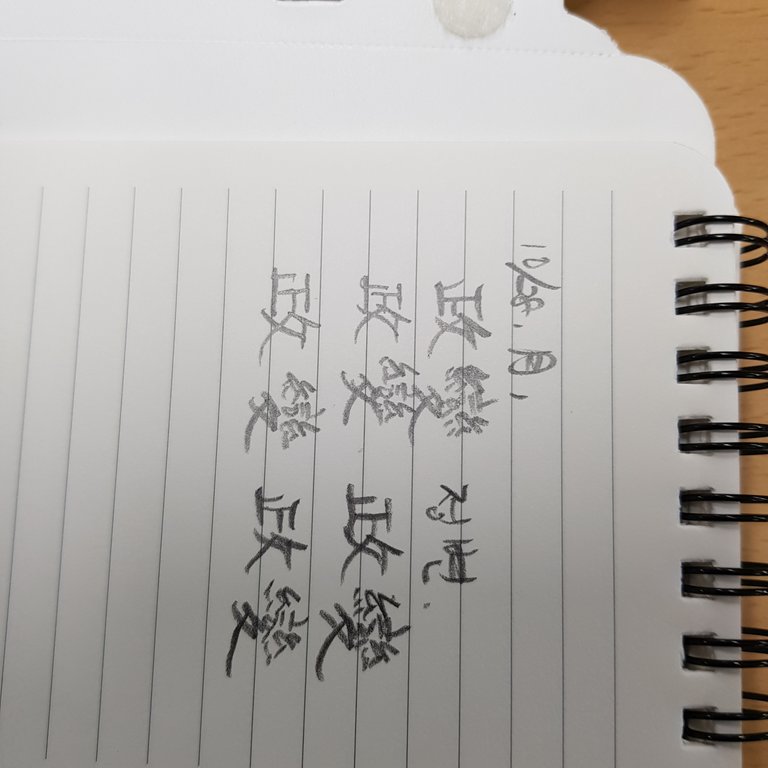 10/28. 月,
政變 정변.
政變 政變
政變 政變